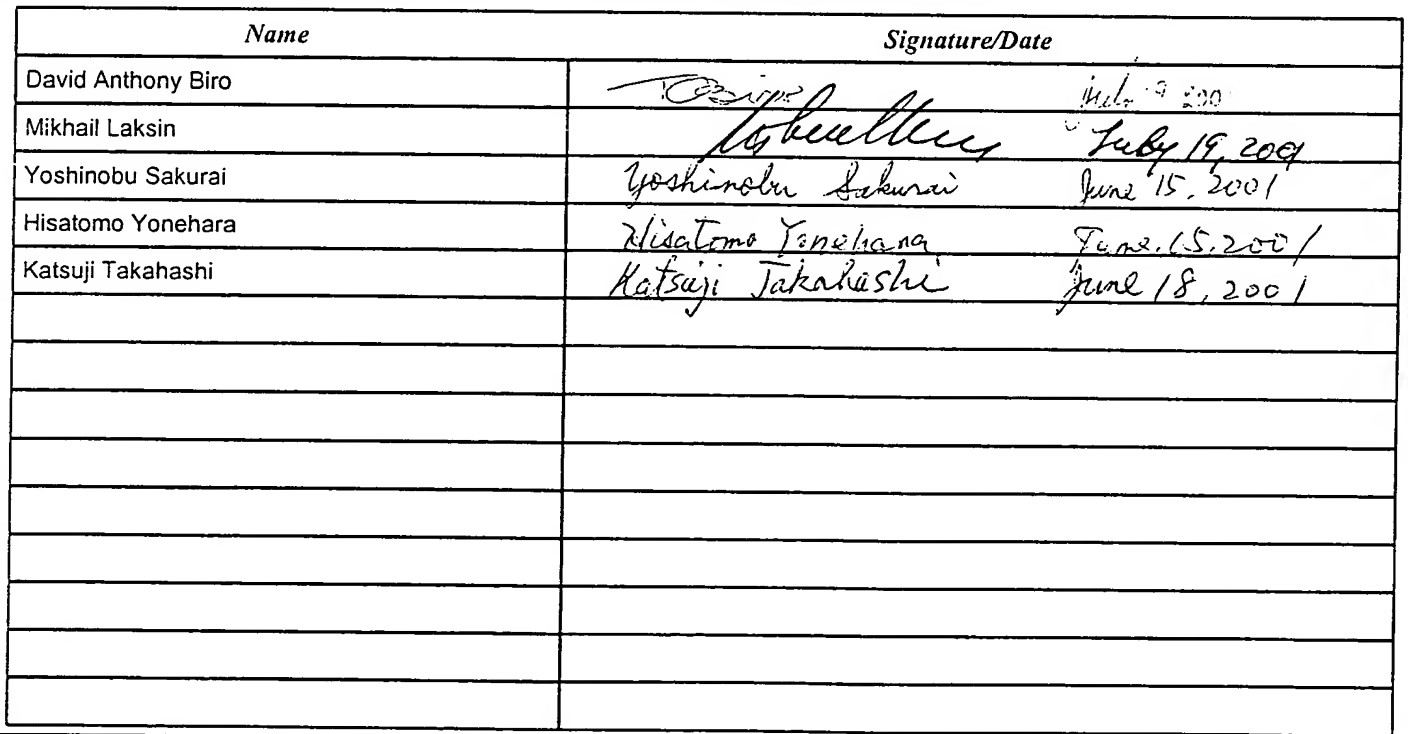 Name Signature/Date
David Anthony Biro
Mikhail Laksin July 19, 2001
Yoshinobu Sakurai Yoshinobu Sakurai June 15, 2001
Hisatomo Yonehara Hisatomo Yonehara June. 15. 2001
Katsuji Takahashi Katsuji Takahashi June 18, 2001